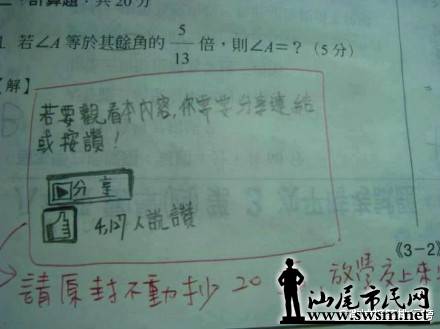 二、計算題：共20分
1. 若∠A等於其餘角的 5/13 倍，則∠A＝？（5分）
【解】
若要觀看本內容，你需要分享連結
或按讚！
分享
4,127人說讚
《3-2》
請原封不動抄20 放學交上來
汕尾市民网
www.swsm.net